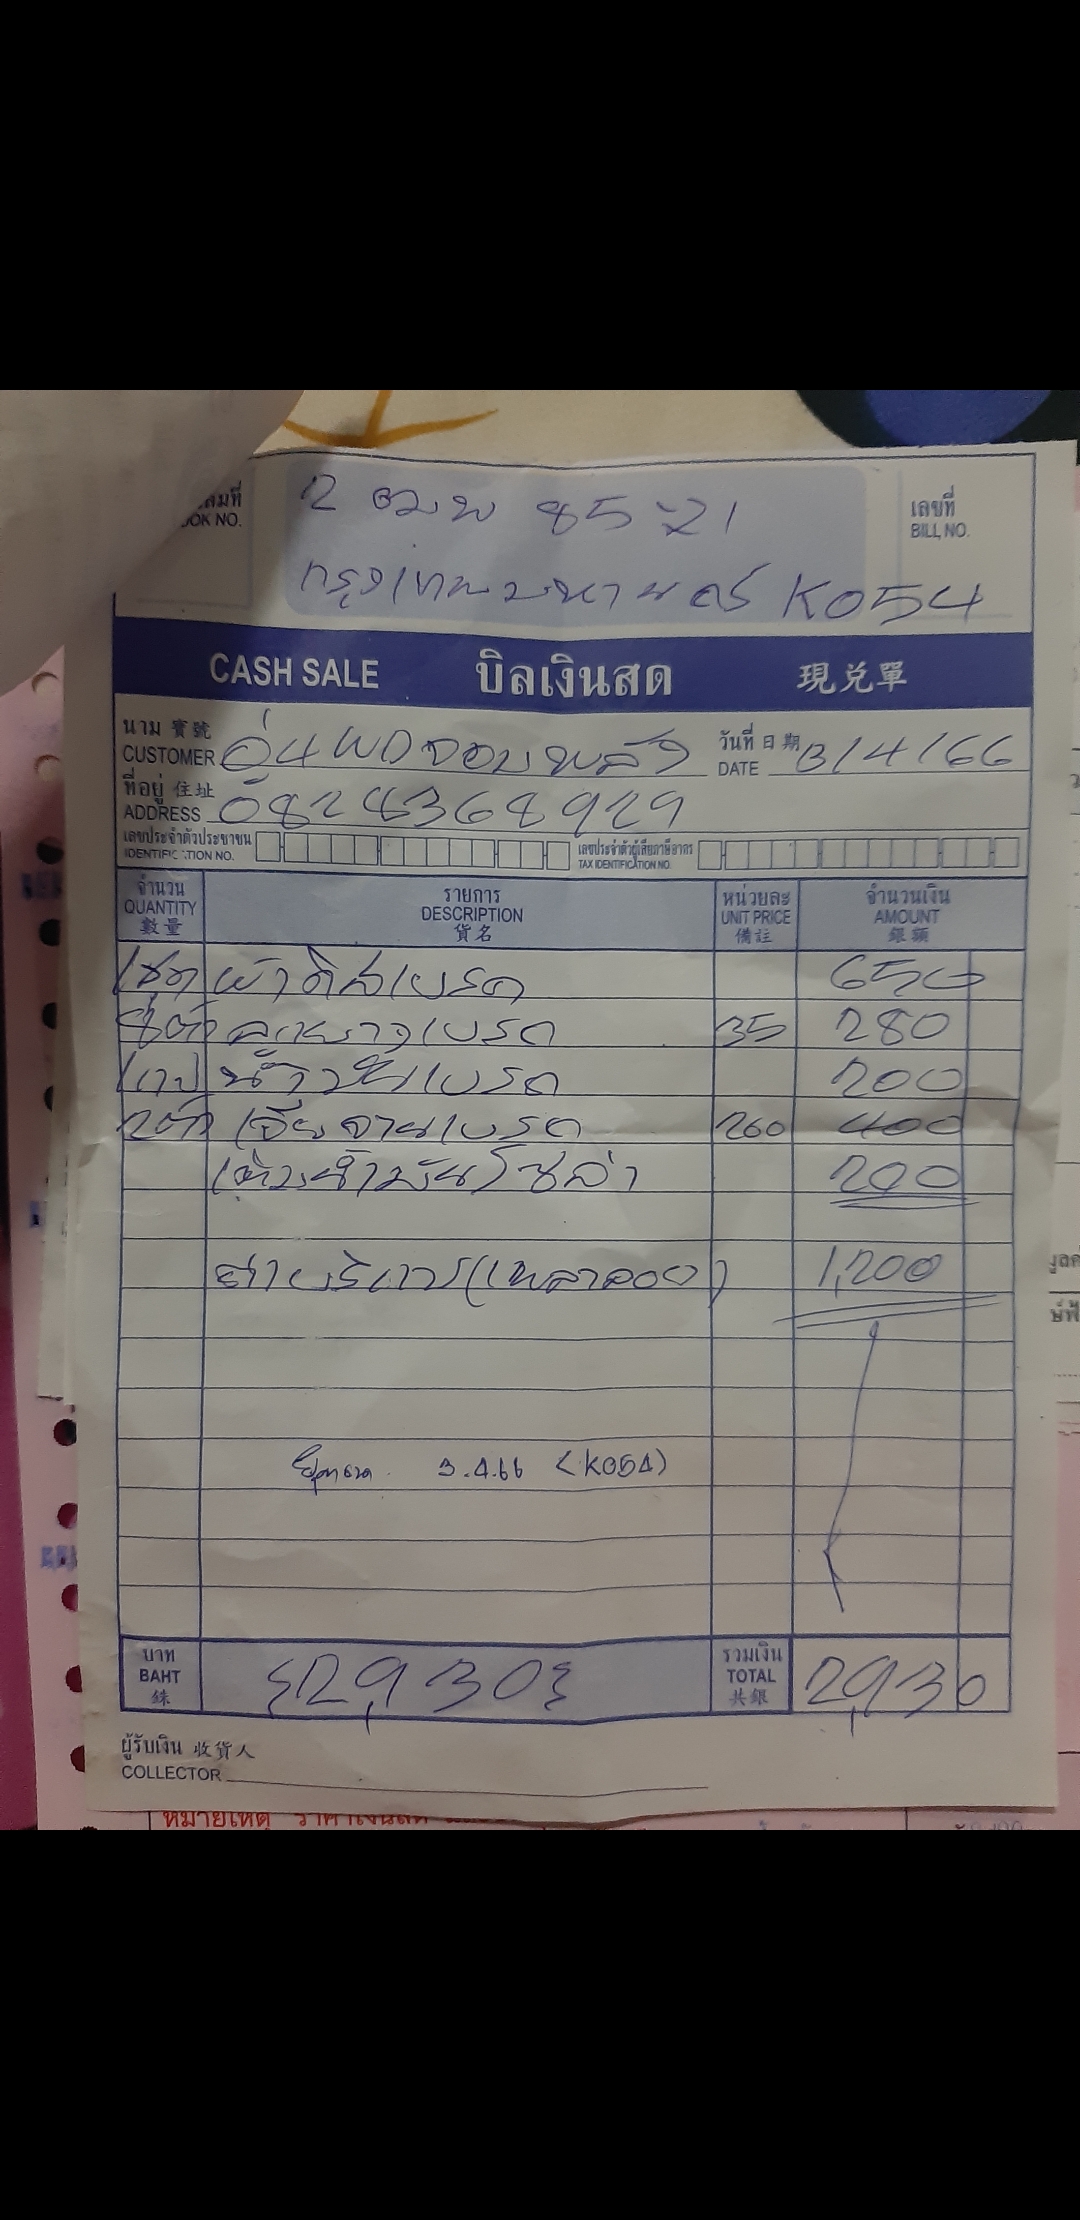 เล่มที่
BOOK NO.
2 ฒมพ 85 21
กรุงเทพมหานคร K054
เลขที่
BILL NO.
CASH SALE บิลเงินสด 現兌單
นาม 寳號
CUSTOMER อู่ 4WD จอมพลัง
วันที่ 日期
DATE 3/4/66
ที่อยู่ 住址
ADDRESS 0824368929
เลขประจำตัวประชาชน
IDENTIFICATION NO.
เลขประจำตัวผู้เสียภาษีอากร
TAX IDENTIFICATION NO.
จำนวน รายการ หน่วยละ จำนวนเงิน
QUANTITY DESCRIPTION UNIT PRICE AMOUNT
數量 貨名 備註 銀額
1ชุด ผ้าดิสเบรค 650
8ตัว ลูกยางเบรค 35 280
1กป น้ำมันเบรค 200
2ตัว เจียจานเบรค 200 400
เติมน้ำมันโซล่า 200
ค่าบริการ(เพลาลอย) 1,200
3.4.66 (K054)
บาท
BAHT
銖
{2,930}
รวมเงิน
TOTAL
共銀
2,930
ผู้รับเงิน 收貨人
COLLECTOR
หมายเหตุ ราคาเงินสด